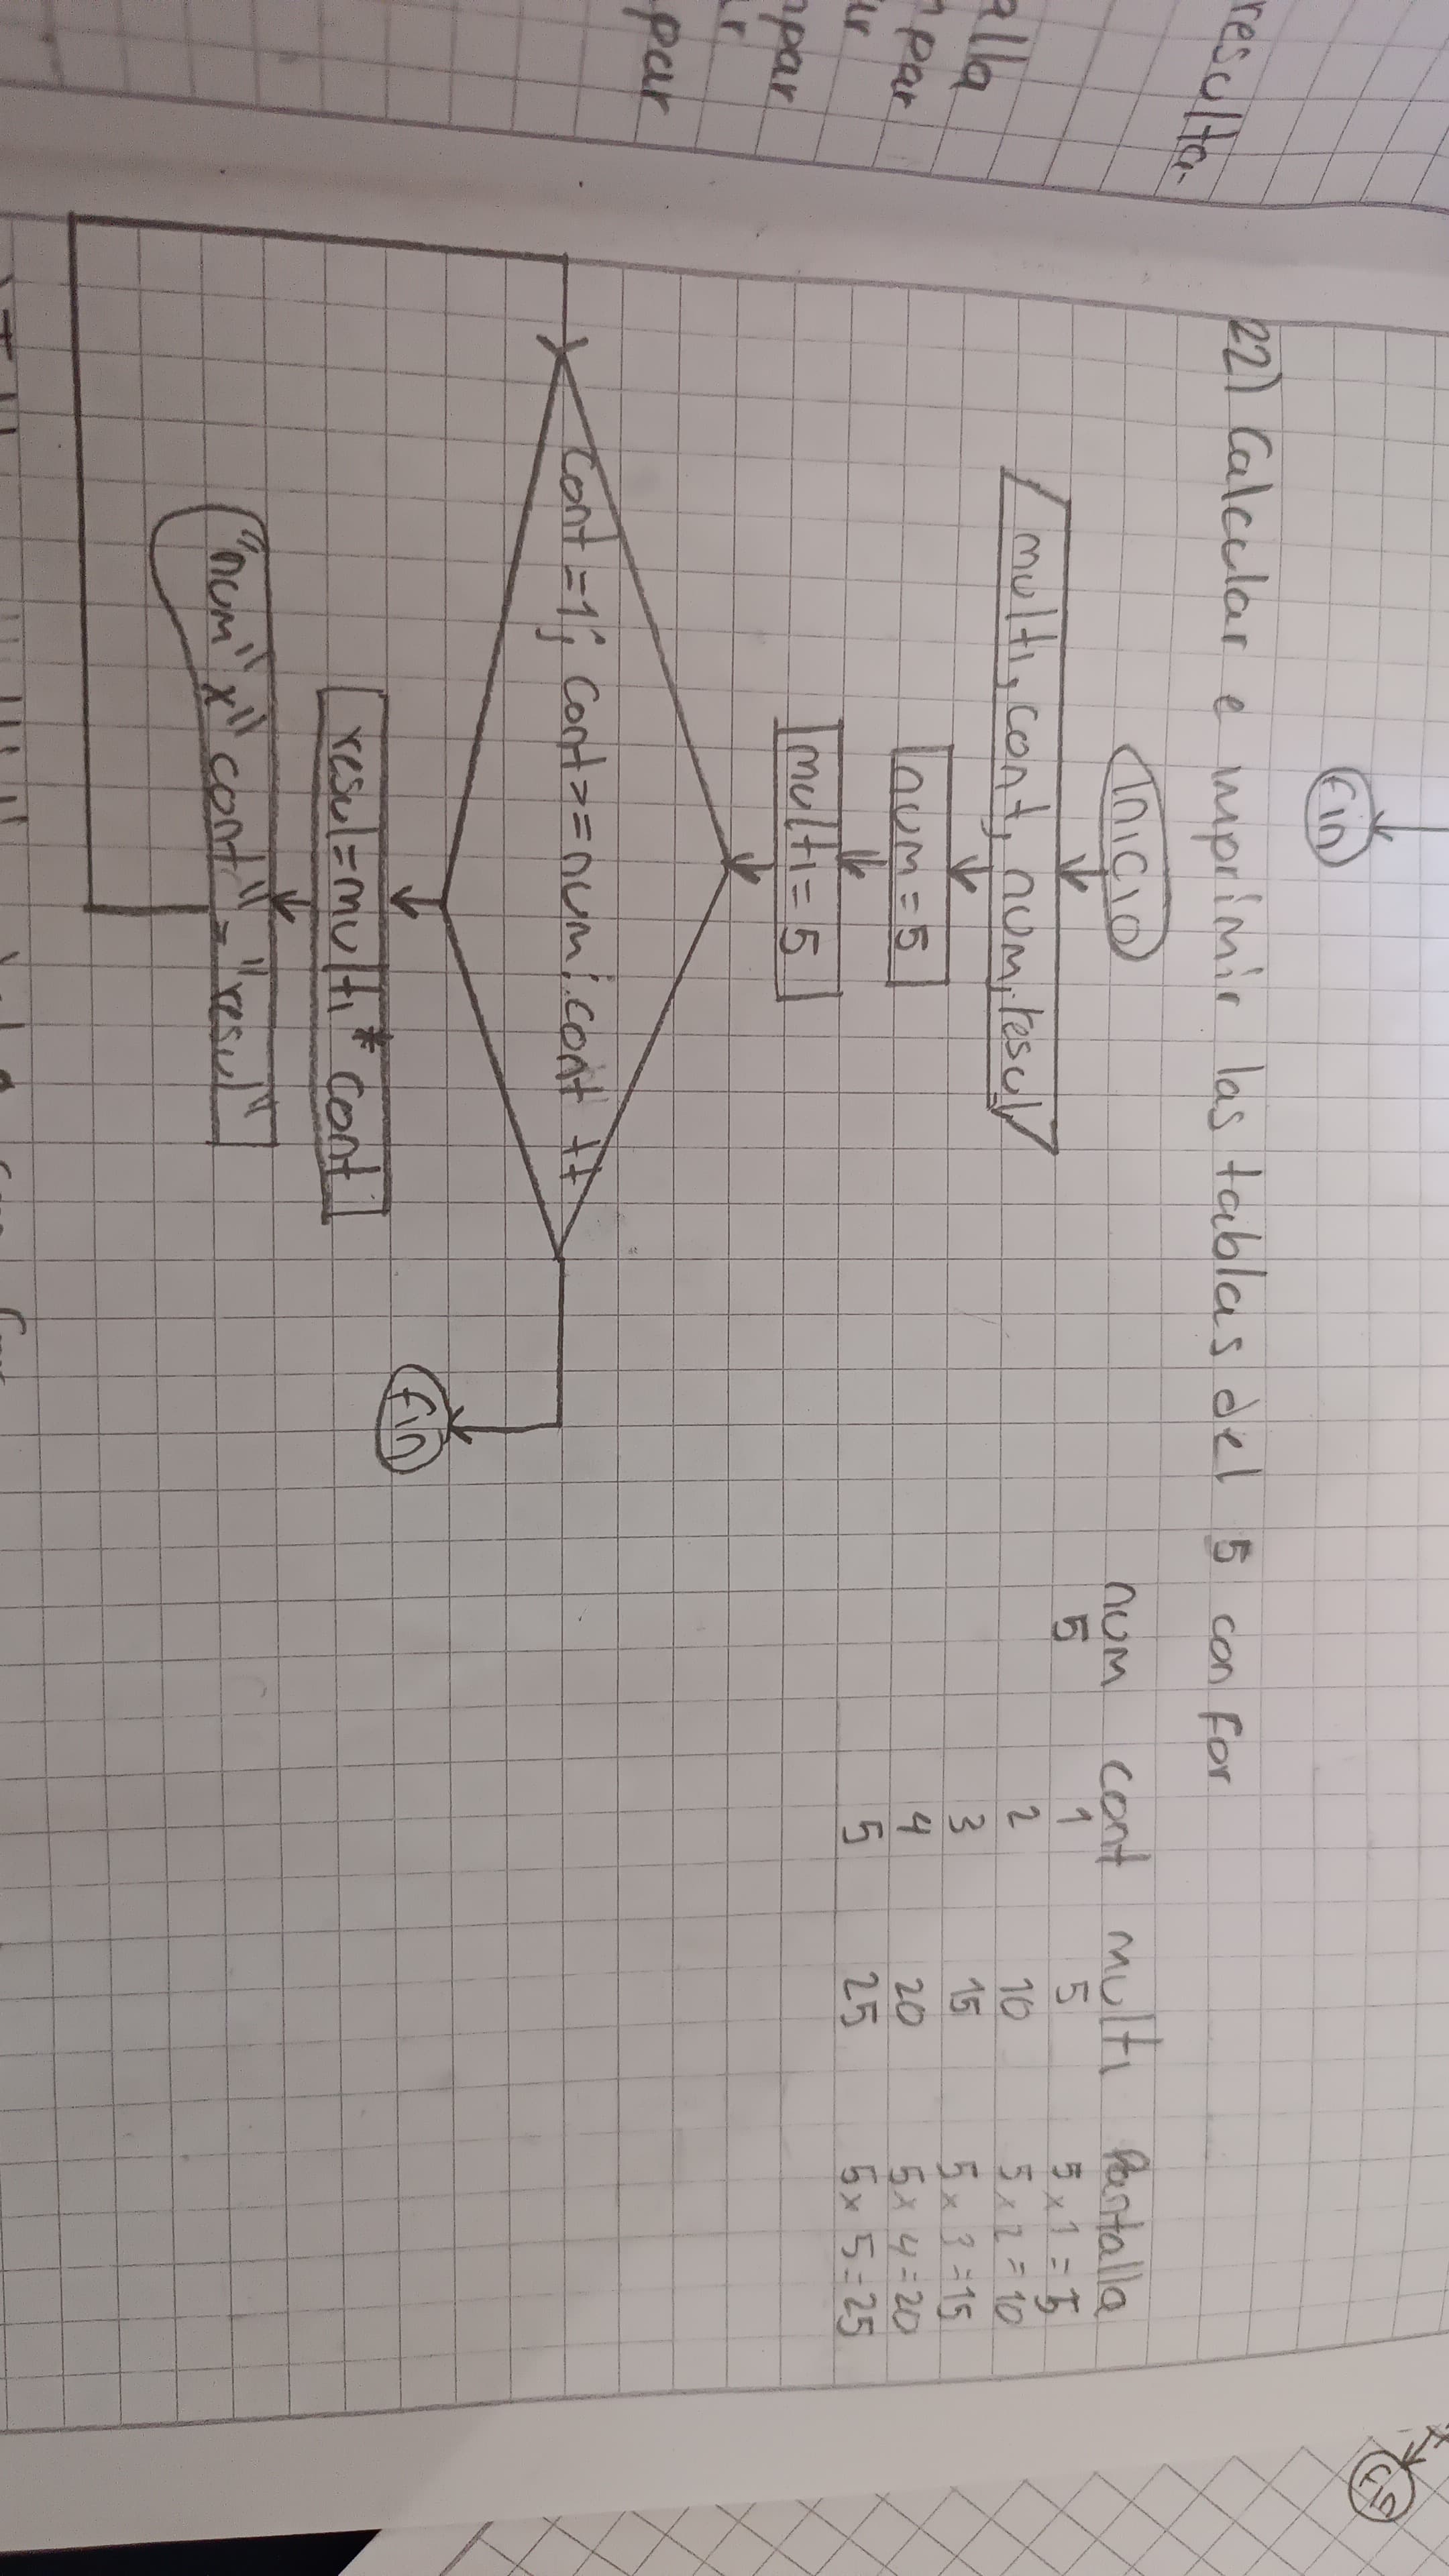 resulta-
alla
par
ur
par
r
par
Fin
22) Calcular e imprimir las tablas del 5 con for
Inicio
multi, cont, num, resul
num = 5
multi = 5
cont =1; cont >= num; cont ++
resul = multi * cont
"num" x" cont" = "resul"
Fin
num cont multi Pantalla
5 1 5 5 x 1 = 5
2 10 5 x 2 = 10
3 15 5 x 3 = 15
4 20 5 x 4 = 20
5 25 5 x 5 = 25
Fin